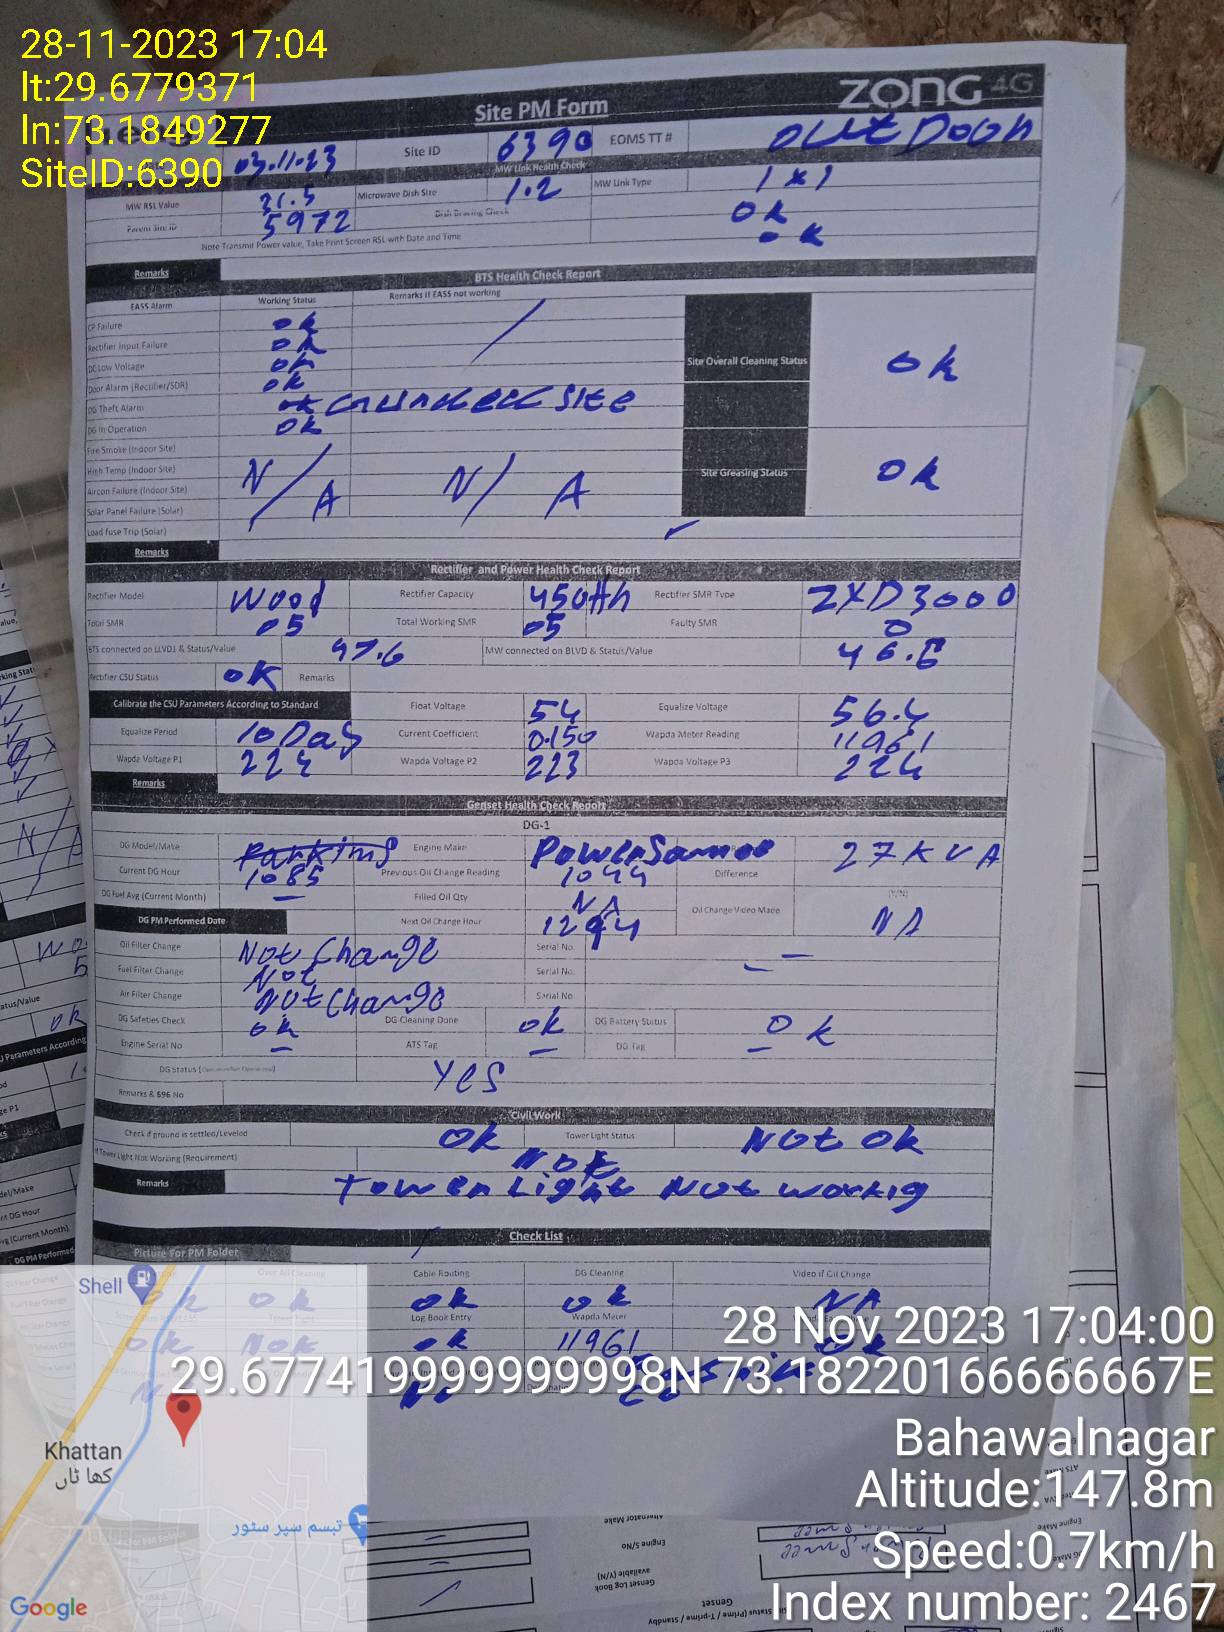 28-11-2023 17:04
lt:29.6779371
ln:73.1849277
SiteID:6390
zong 4G
Site PM Form
03.11.23 Site ID 6390 EOMS TT # outDooh
MW Link Health Check
MW RSL Value 31.5 Microwave Dish Size 1.2 MW Link Type 1x1
Parent Site ID 5972 Dish Bracing Check ok
Note Transmit Power value, Take Print Screen RSL with Date and Time ok
Remarks
BTS Health Check Report
EASS Alarm Working Status Remarks if EASS not working
CP Failure ok
Rectifier Input Failure ok
DC Low Voltage ok Site Overall Cleaning Status ok
Door Alarm (Rectifier/SDR) ok
DG Theft Alarm ok site
DG In Operation ok
Fire Smoke (Indoor Site)
High Temp (Indoor Site) N/A N/A Site Greasing Status ok
Aircon Failure (Indoor Site)
Solar Panel Failure (Solar)
Load fuse Trip (Solar)
Remarks
Rectifier and Power Health Check Report
Rectifier Model Wood Rectifier Capacity 450Ah Rectifier SMR Type ZXD3000
Total SMR 05 Total Working SMR 05 Faulty SMR 0
BTS connected on LLVD1 & Status/Value 47.6 MW connected on BLVD & Status/Value 46.6
Rectifier CSU Status OK Remarks
Calibrate the CSU Parameters According to Standard Float Voltage 54 Equalize Voltage 56.4
Equalize Period 10 Day Current Coefficient 0.150 Wapda Meter Reading 11961
Wapda Voltage P1 224 Wapda Voltage P2 223 Wapda Voltage P3 224
Remarks
Genset Health Check Report
DG-1
DG Model/Make Parkins Engine Make Power 27KVA
Current DG Hour 1085 Previous Oil Change Reading 1044 Difference
DG Fuel Avg (Current Month) – Filled Oil Qty NA Oil Change Video Made NA
DG PM Performed Date Next Oil Change Hour 1294
Oil Filter Change Not Change Serial No –
Fuel Filter Change Not Serial No –
Air Filter Change Not Change Serial No
DG Safeties Check ok DG Cleaning Done ok DG Battery Status ok
Engine Serial No – ATS Tag – DG Tag –
DG Status Yes
Remarks & 696 No
Civil Work
Check if ground is settled/Leveled ok Tower Light Status Not ok
If Tower Light Not Working (Requirement) Nok
Remarks Tower Light Not workig
Check List
Picture For PM Folder
Cable Routing DG Cleaning Video if Oil Change
ok ok ok ok NA
Log Book Entry Wapda Meter
ok Nok ok 11961 ok
Shell
Khattan
کھا ٹاں
تبسم سپر سٹور
Google
28 Nov 2023 17:04:00
29.677419999999998N 73.18220166666667E
Bahawalnagar
Altitude:147.8m
Speed:0.7km/h
Index number: 2467
Alternator Make
Engine S/No
Genset Log Book
available (Y/N)
Genset
Status (Prime / T-prime / Standby